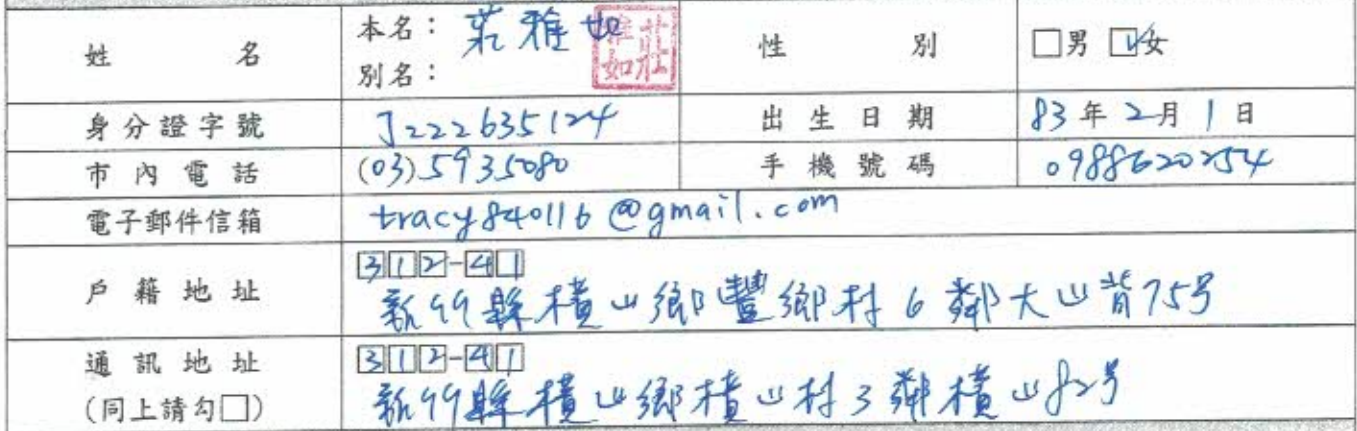 姓名 本名：莊雅如 莊雅如 性別 □男 ☑女
別名：
身分證字號 J222635124 出生日期 83年2月1日
市內電話 (03)5935080 手機號碼 0988620254
電子郵件信箱 tracy840116@gmail.com
戶籍地址 312-41
新竹縣橫山鄉豐鄉村6鄰大山背75号
通訊地址 312-41
(同上請勾□) 新竹縣橫山鄉橫山村3鄰橫山82号